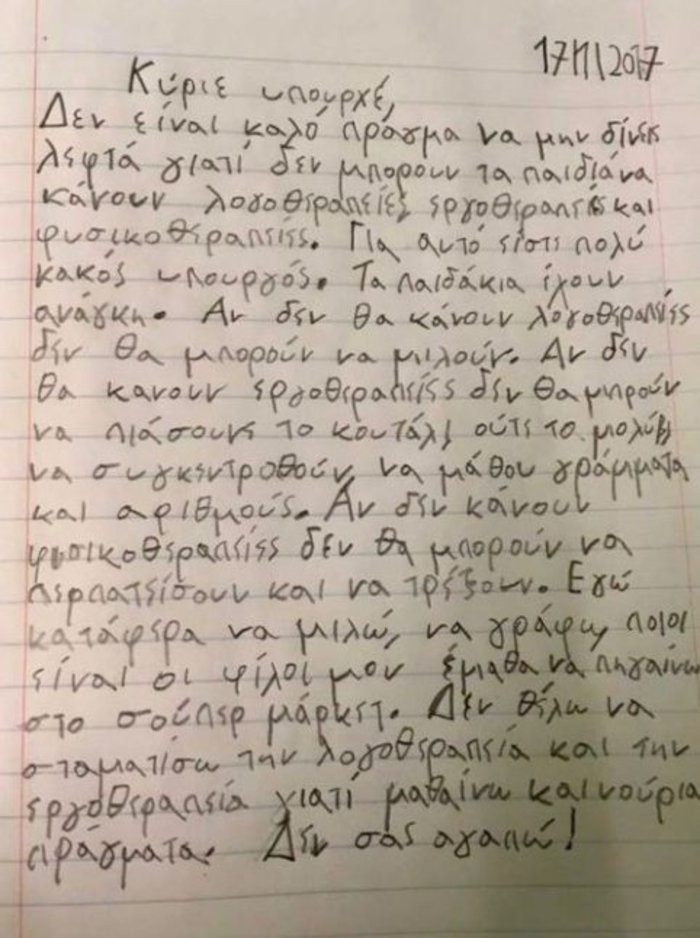 17/11/2017
Κύριε υπουρχέ,
Δεν είναι καλό πράγμα να μην δίνεις
λεφτά γιατί δεν μπορουν τα παιδιά να
κάνουν λογοθεραπείες, εργοθεραπείες και
φυσικοθεραπείες. Για αυτό είστε πολύ
κακός υπουργός. Τα παιδάκια έχουν
ανάγκη. Αν δεν θα κάνουν λόγοθεραπείες
δεν θα μπορούν να μιλούν. Αν δεν
θα κανουν εργοθεραπείες δεν θα μπρούν
να πιάσουν το κουτάλι ούτε το μολύβι,
να συγκεντροθούν, να μάθου γράμματα
και αριθμούς. Αν δεν κάνουν
φυσικοθεραπείες δεν θα μπορούν να
περπατείσουν και να τρέξουν. Εγώ
κατάφερα να μιλώ, να γράφω, ποιοι
είναι οι φίλοι μου έμαθα να πηγαίνω
στο σούπερ μάρκετ. Δεν θέλω να
σταματίσω την λογοθεραπεία και την
εργοθεραπεία γιατί μαθαίνω καινούρια
πράγματα. Δεν σας αγαπώ!